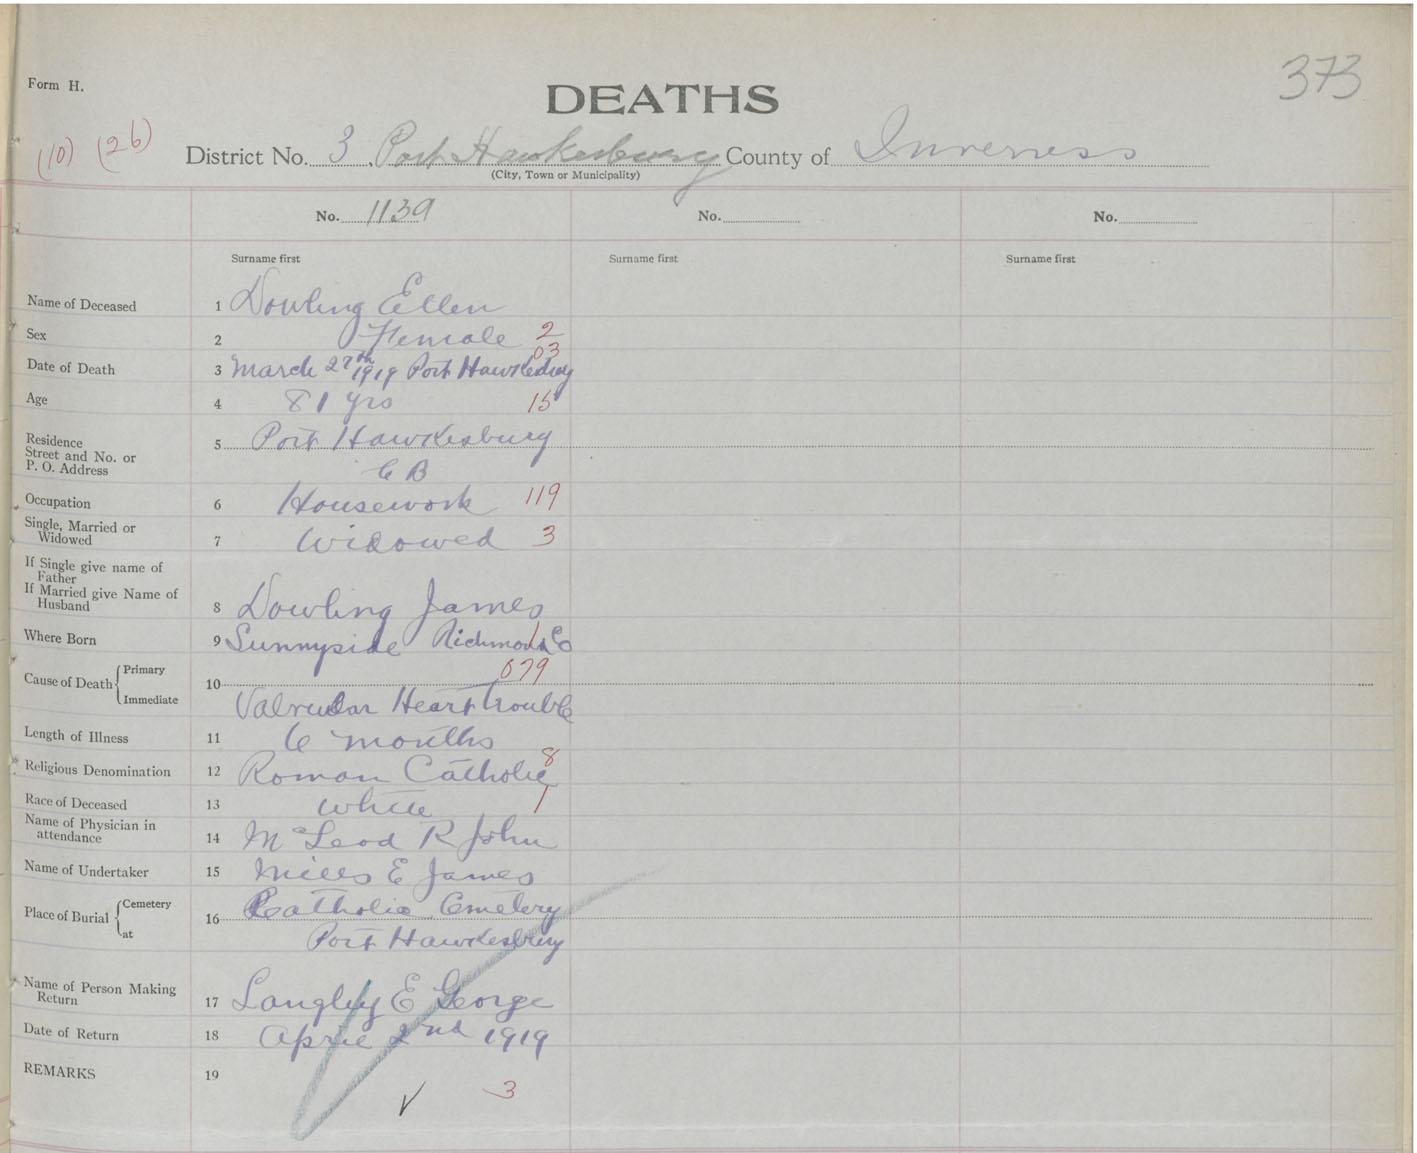 373
Form H.
DEATHS
(10) (26)
District No. 3 Port Hawkesbury County of Inverness
(City, Town or Municipality)
No. 1139 No. No.
Surname first Surname first Surname first
Name of Deceased 1 Dowling Ellen
Sex 2 Female 2
03
Date of Death 3 March 27th 1919 Port Hawkesbury
Age 4 81 yrs 15
Residence
Street and No. or
P. O. Address
5 Port Hawkesbury
C B
Occupation 6 Housework 119
Single, Married or
Widowed 7 Widowed 3
If Single give name of
Father
If Married give Name of
Husband 8 Dowling James
Where Born 9 Sunnyside Richmond Co 1
Cause of Death Primary 10 079
Immediate Valvular Heart trouble
Length of Illness 11 6 months
Religious Denomination 12 Roman Catholic 8
Race of Deceased 13 White 1
Name of Physician in
attendance 14 McLeod R John
Name of Undertaker 15 Mills E James
Place of Burial Cemetery 16 Catholic Cemetery
at Port Hawkesbury
Name of Person Making
Return 17 Langley E George
Date of Return 18 April 2nd 1919
REMARKS 19
3